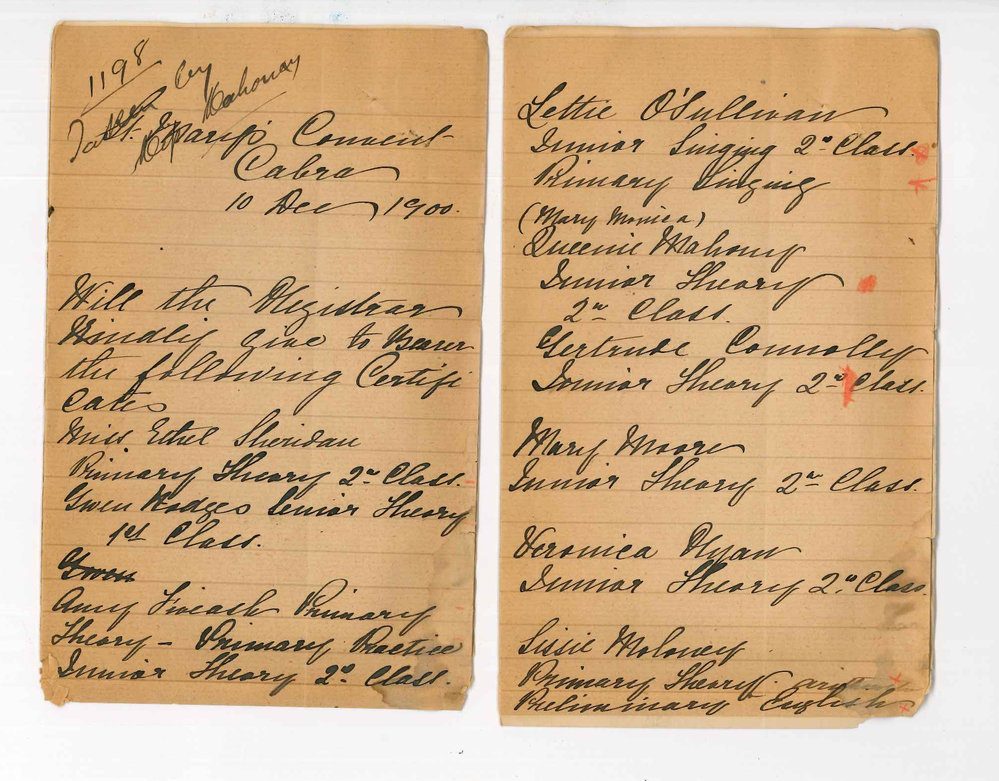 1198
Taken by
Mahoney
St. Mary's Convent
Cabra
10 Dec 1900.
Will the Registrar
Kindly give to Bearer
the following Certifi
cates
Miss Ethel Sheridan
Primary Theory 2nd Class.
Gwen Hodges Senior Theory
1st Class.
Gwen
Amy Fiveash Primary
Theory - Primary Practice
Junior Theory 2nd Class.
Lettie O'Sullivan
Junior Singing 2nd Class.
Primary Singing
(Mary Monica)
Queenie Mahony
Junior Theory
2nd Class.
Gertrude Connolly
Junior Theory 2nd Class.
Mary Moore
Junior Theory 2nd Class.
Veronica Ryan
Junior Theory 2nd Class.
Sissie Moloney
Primary Theory
Preliminary English